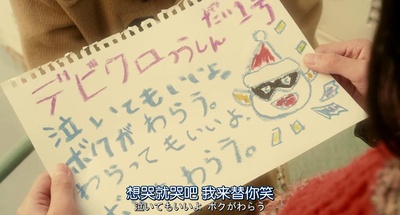 デビクロつうしん だい1号
泣いてもいいよ。
ボクがわらう。
わらってもいいよ。
わらう。
想哭就哭吧 我来替你笑
泣いてもいいよ ボクがわらう